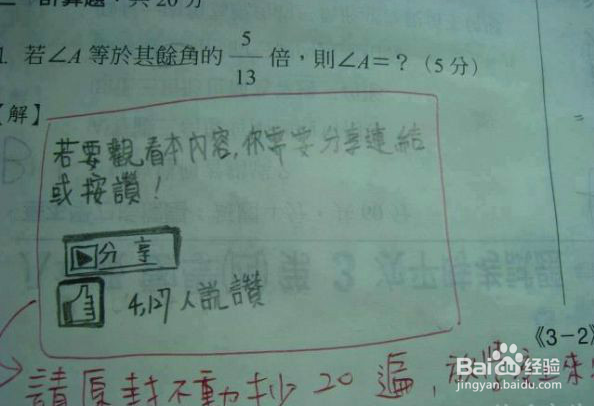 計算題，共20分
1. 若∠A 等於其餘角的 5/13 倍，則∠A＝？（5分）
【解】
若要觀看本內容，你需要分享連結
或按讚！
分享
4,127人說讚
《3-2》
請原封不動抄20遍，放學 來
Baidu 经验
jingyan.baidu.com